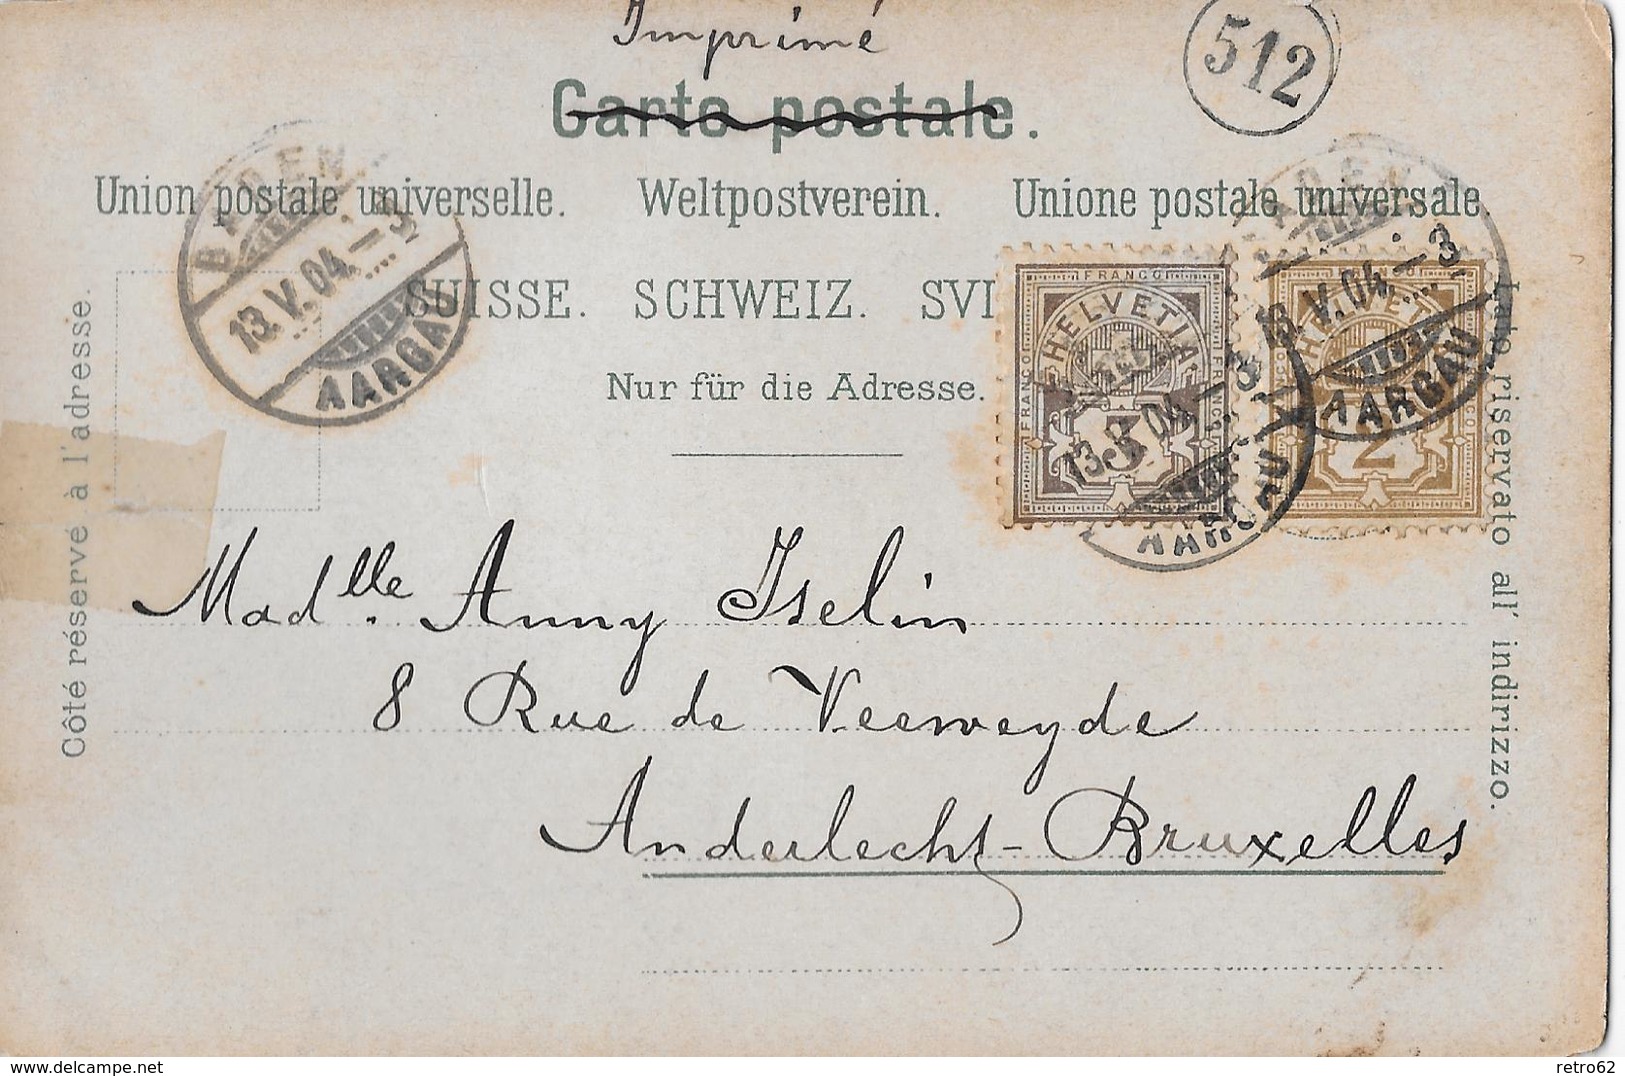 Imprimé
512
Carte postale.
Union postale universelle. Weltpostverein. Unione postale universale.
SUISSE. SCHWEIZ. SVI
Nur für die Adresse.
Côté réservé à l'adresse.
Lato riservato all' indirizzo.
BADEN
13.V.04.–3
AARGAU
FRANCO
HELVETIA
FRANCO
FRANCO
13.V.04.–3
AARGAU
BADEN
13.V.04.–3
AARGAU
HELVETIA
FRANCO
2
Madlle. Anny Iselin
8 Rue de Veeweyde
Anderlecht-Bruxelles
delcampe.net
retro62